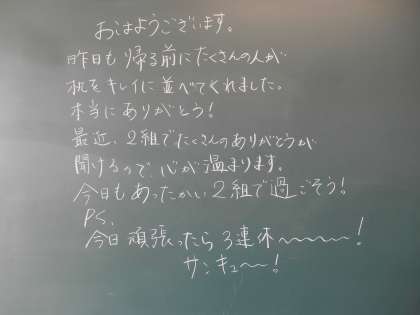 おはようございます。
昨日も帰る前にたくさんの人が
机をキレイに並べてくれました。
本当にありがとう!
最近、2組でたくさんのありがとうが
聞けるので、心が温まります。
今日もあったかい2組で過ごそう!
P.S.
今日頑張ったら3連休〜〜〜〜〜!
サンキュ〜〜!